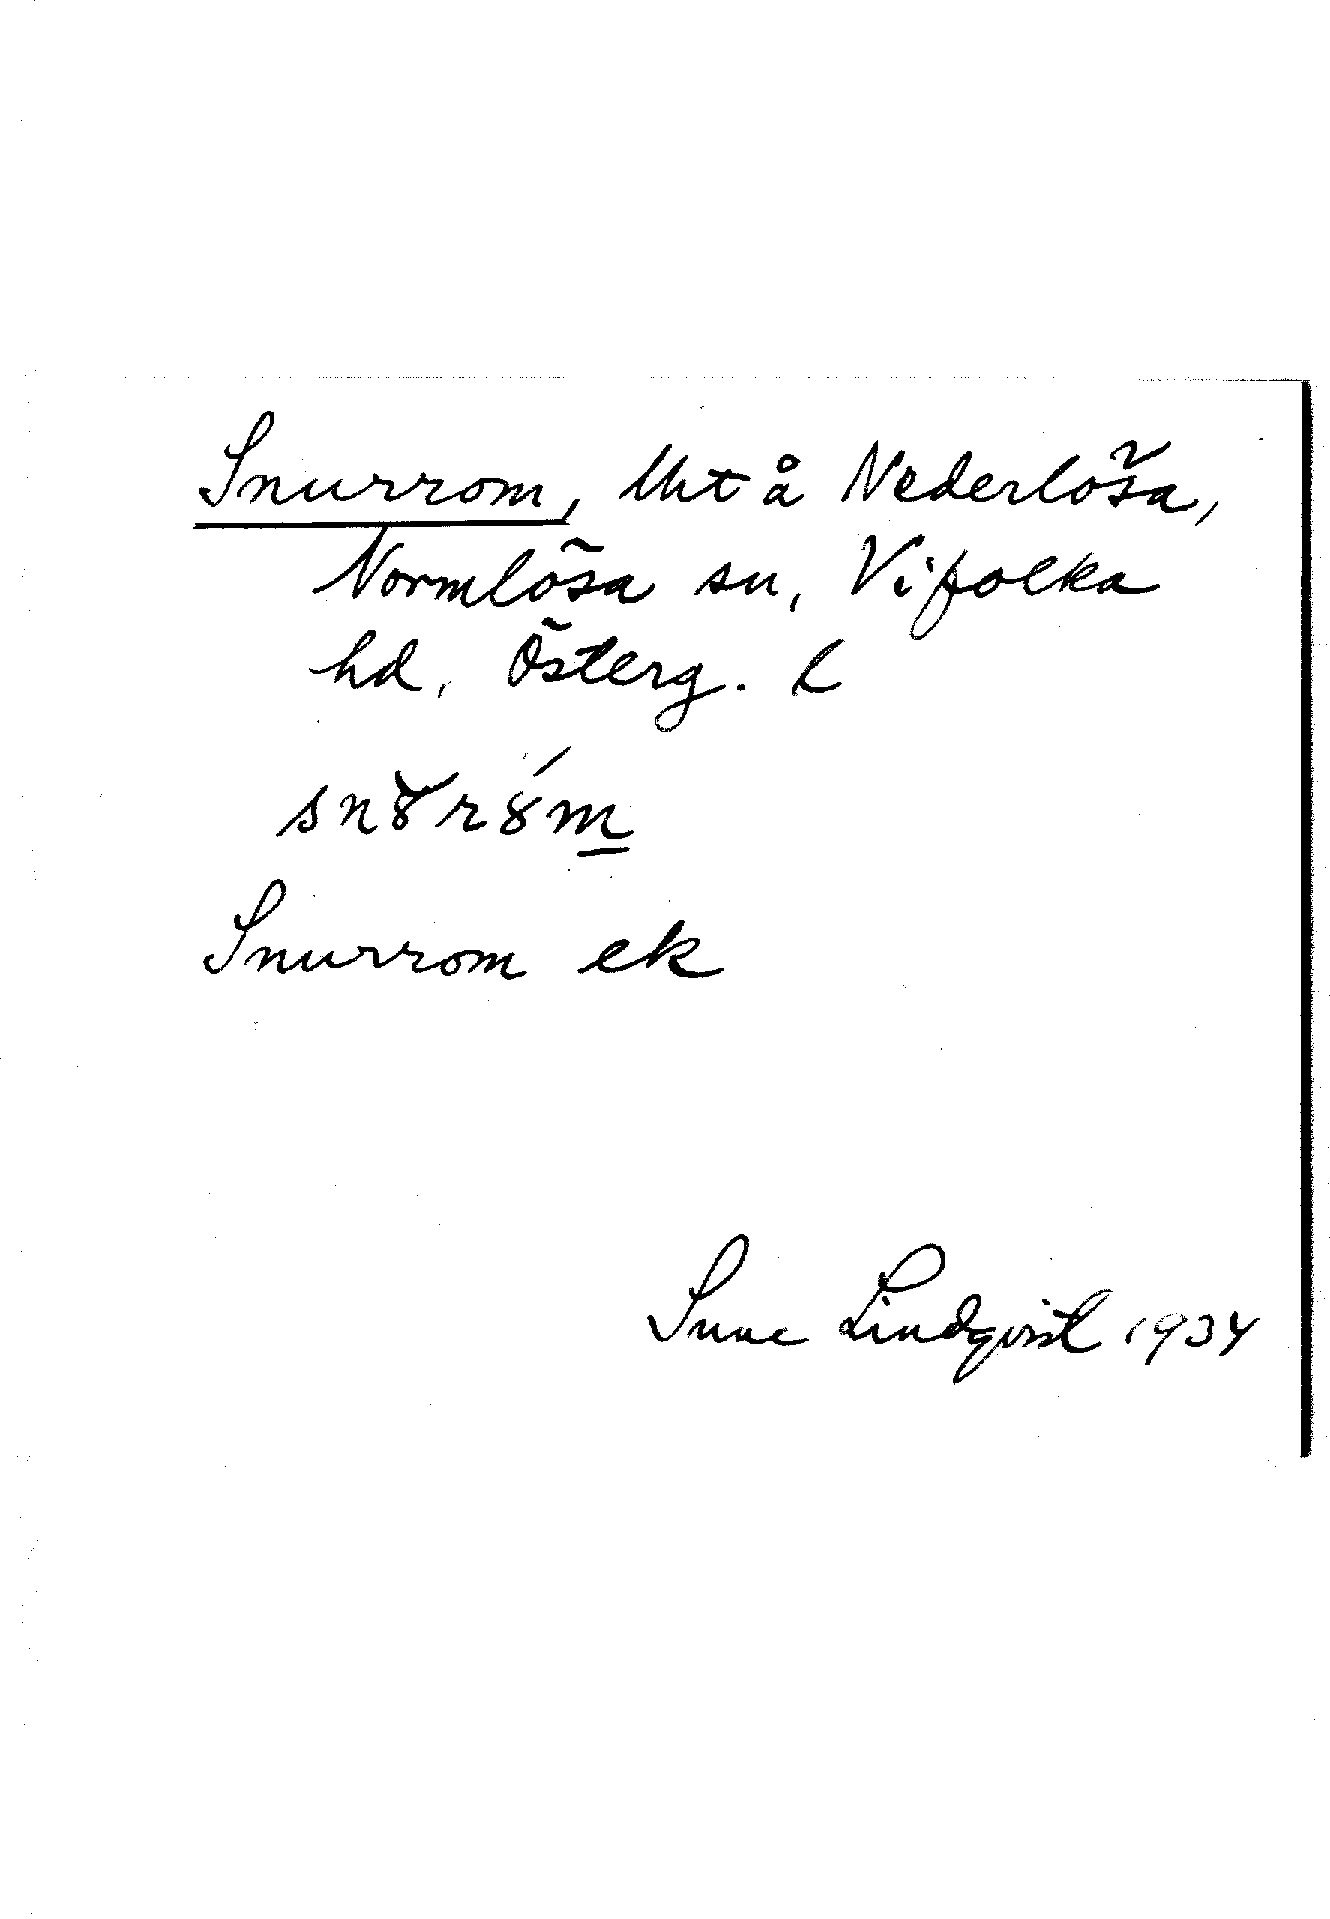 Snurrom, lht å Nederlösa,
Normlösa sn, Vifolka
hd, Österg. l
Snurrom ek
Sune Lindqvist 1934